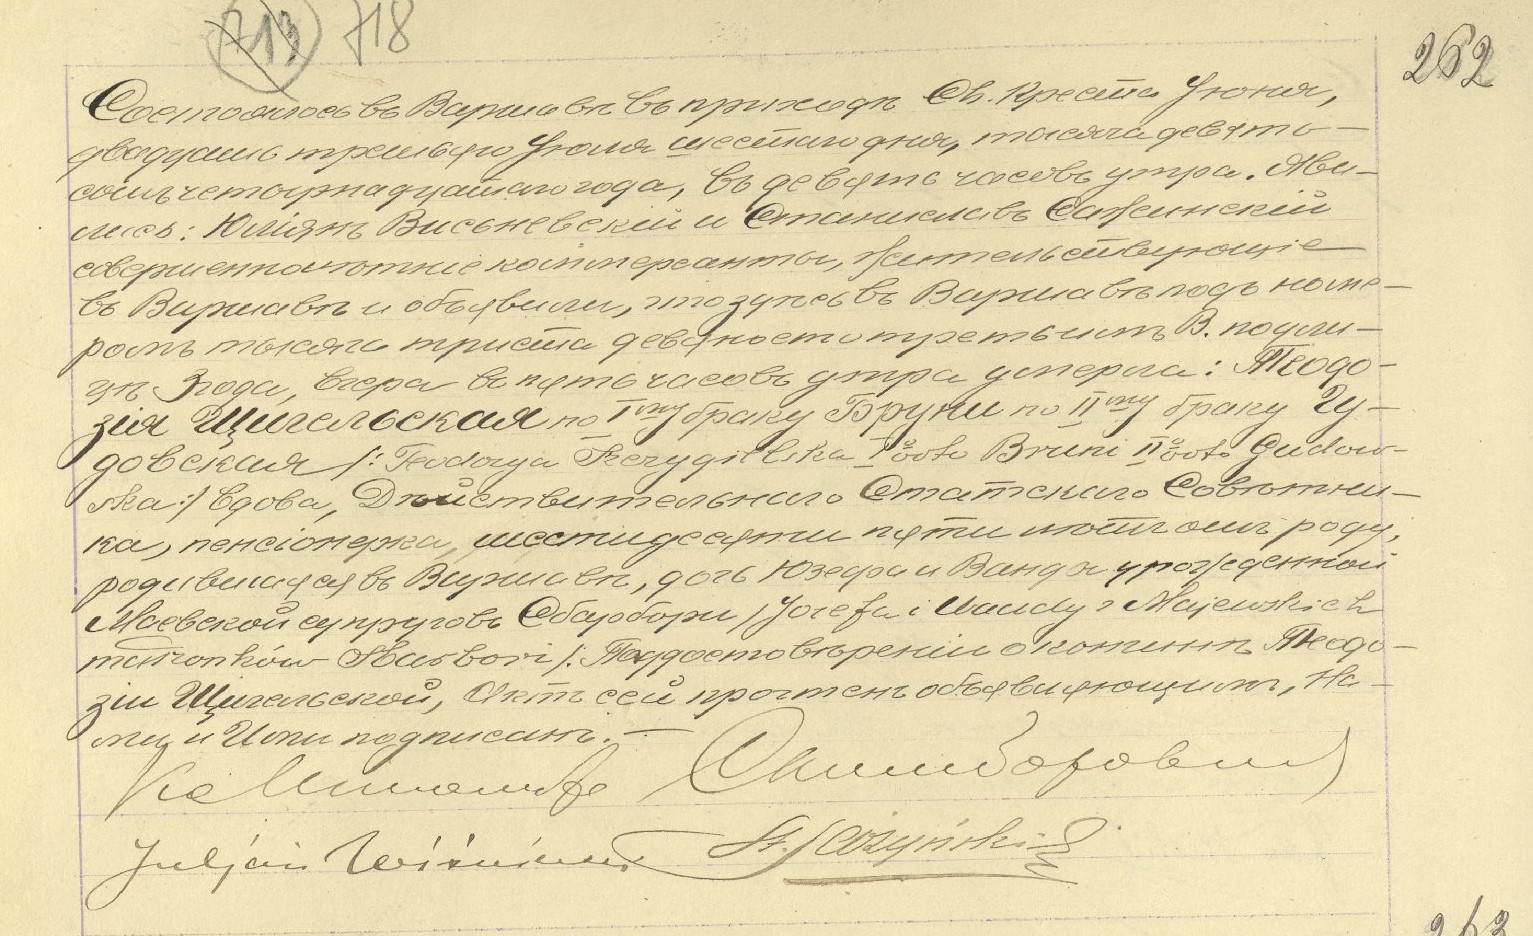 713 718
262
Состоялось въ Варшавѣ въ приходѣ Св. Креста Іюня,
двадцать третьяго Іюля шестаго дня, тысяча девять-
сотъ четырнадцатаго года, въ девять часовъ утра. Яви-
лись: Юліянъ Висьневскій и Станиславъ
совершеннолѣтніе коммерсанты, жительствующіе
въ Варшавѣ и объявили, что здѣсь въ Варшавѣ подъ номе-
ромъ тысяча триста девяносто третьимъ В. по ули-
цѣ Згода, вчера въ пять часовъ утра умерла: Теодо-
зія Щигельская по I му браку Бруни по II му браку Гу-
довская /: Teodozya Szczygielska Iº voto Bruni IIº voto Gudow-
ska :/ вдова, Дѣйствительнаго Статскаго Совѣтни-
ка, пенсіонерка, шестидесяти пяти лѣтъ отъ роду,
родившаяся въ Варшавѣ, дочь Юзефа и Ванды урожденной
Маевской супруговъ /Józefa i Wandy z Majewskich
małżonków По удостовѣреніи о кончинѣ Теодо-
зіи Щигельской, Актъ сей прочтенъ объявляющимъ, На-
ми и Ими подписанъ.—
Juljan Wiśniewski St.
263